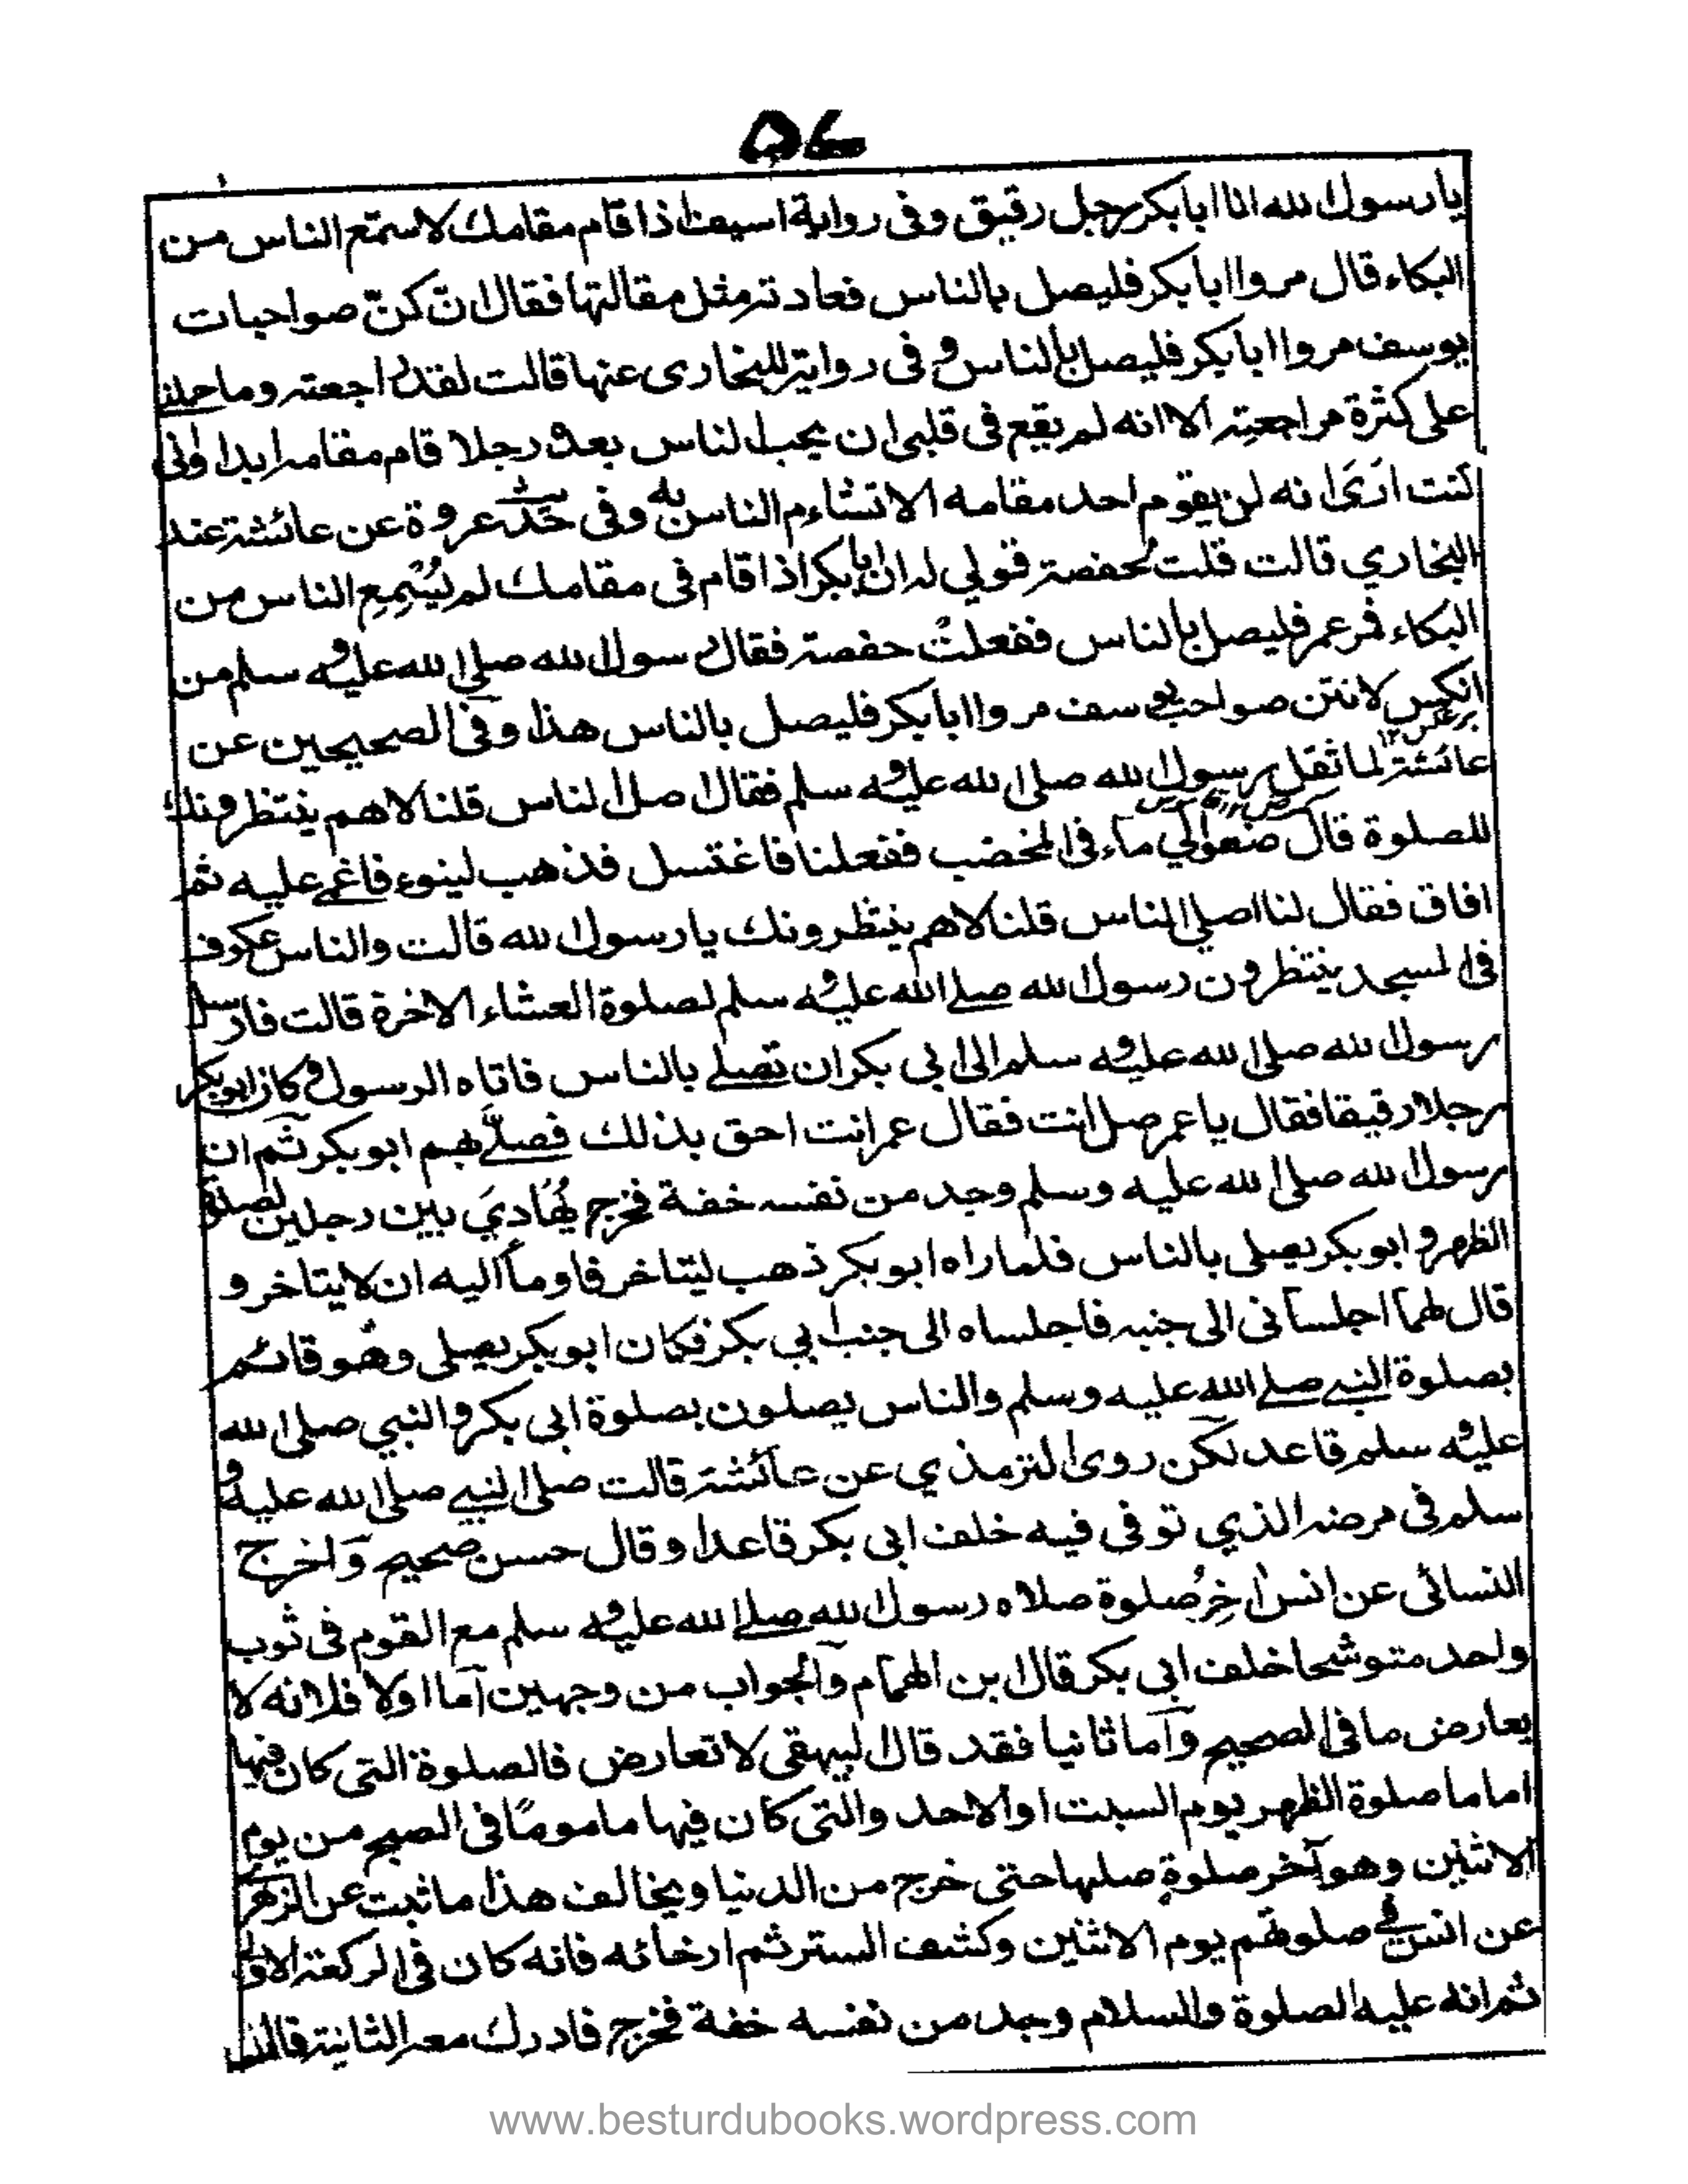 ۵۷
يا رسول الله ان ابا بكر رجل رقيق وفى رواية اسيف اذا قام مقامك لا يسمع الناس من
البكاء قال مروا ابا بكر فليصل بالناس فعادت مثل مقالتها فقال ان كنّ صواحبات
يوسف مروا ابا بكر فليصل بالناس و فى رواية للبخارى عنها قالت لقد راجعته وما حملنى
على كثرة مراجعته الا انه لم يقع فى قلبى ان يحب الناس بعده رجلا قام مقامه ابدا وانى
كنت ارَى انه لن يقوم احد مقامه الا تشاءم الناس به وفى حديث عروة عن عائشة عند
البخاري قالت قلت لحفصة قولي له ان ابا بكر اذا قام فى مقامك لم يُسْمِعِ الناس من
البكاء فمر عمر فليصل بالناس ففعلت حفصة فقال رسول الله صلى الله عليه و سلم من
انكن لانتن صواحب يوسف مروا ابا بكر فليصل بالناس هذا وفى الصحيحين عن
عائشة لما ثقل رسول الله صلى الله عليه و سلم فقال اصلى الناس قلنا لا هم ينتظرونك
للصلوة قال ضعوا لي ماء فى المخضب ففعلنا فاغتسل فذهب لينوء فاغمى عليه ثم
افاق فقال لنا اصلى الناس قلنا لا هم ينتظرونك يا رسول الله قالت والناس عكوف
فى المسجد ينتظرون رسول الله صلے الله عليه و سلم لصلوة العشاء الاخرة قالت فارسل
رسول الله صلى الله عليه و سلم الى ابي بكر ان تصلے بالناس فاتاه الرسول و كان ابو بكر
رجلا رقيقا فقال يا عمر صل انت فقال عمر انت احق بذلك فصلّے بهم ابو بكر ثم ان
رسول الله صلى الله عليه وسلم وجد من نفسه خفة فخرج يُهَادي بين رجلين لصلوة
الظهر و ابو بكر يصلى بالناس فلما راه ابو بكر ذهب ليتاخر فاومأ اليه ان لا يتاخر و
قال لهما اجلسانى الى جنبه فاجلساه الى جنب ابي بكر فكان ابو بكر يصلى وهو قائم
بصلوة النبے صلے الله عليه وسلم والناس يصلون بصلوة ابى بكر والنبي صلى الله
عليه و سلم قاعد لكن روى الترمذي عن عائشة قالت صلى النبے صلى الله عليه و
سلم فى مرضه الذي توفى فيه خلف ابى بكر قاعدا وقال حسن صحيح واخرج
النسائى عن انس اخِرُ صلوة صلاه رسول الله صلے الله عليه و سلم مع القوم فى ثوب
واحد متوشحا خلف ابي بكر قال ابن الهمام والجواب من وجهين اما اولا فلانه لا
يعارض ما فى الصحيح واما ثانيا فقد قال البيهقى لا تعارض فالصلوة التى كان فيها
اماما صلوة الظهر يوم السبت او الاحد والتى كان فيها ماموما فى الصبح من يوم
الاثنين وهو آخر صلوة صلىها حتى خرج من الدنيا ويخالف هذا ما ثبت عن الزهرى
عن انس فے صلوتهم يوم الاثنين وكشف الستر ثم ارخائه فانه كان فى الركعة الاولى
ثم انه عليه الصلوة والسلام وجد من نفسه خفة فخرج فادرك معه الثانية
www.besturdubooks.wordpress.com